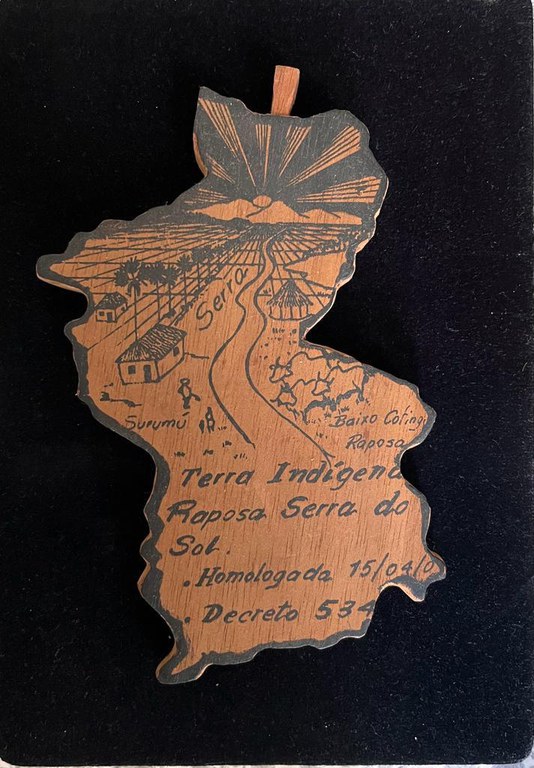 Serra
Surumú
Baixo Coting
Raposa
Terra Indígena
Raposa Serra do
Sol.
. Homologada 15/04/0
. Decreto 534